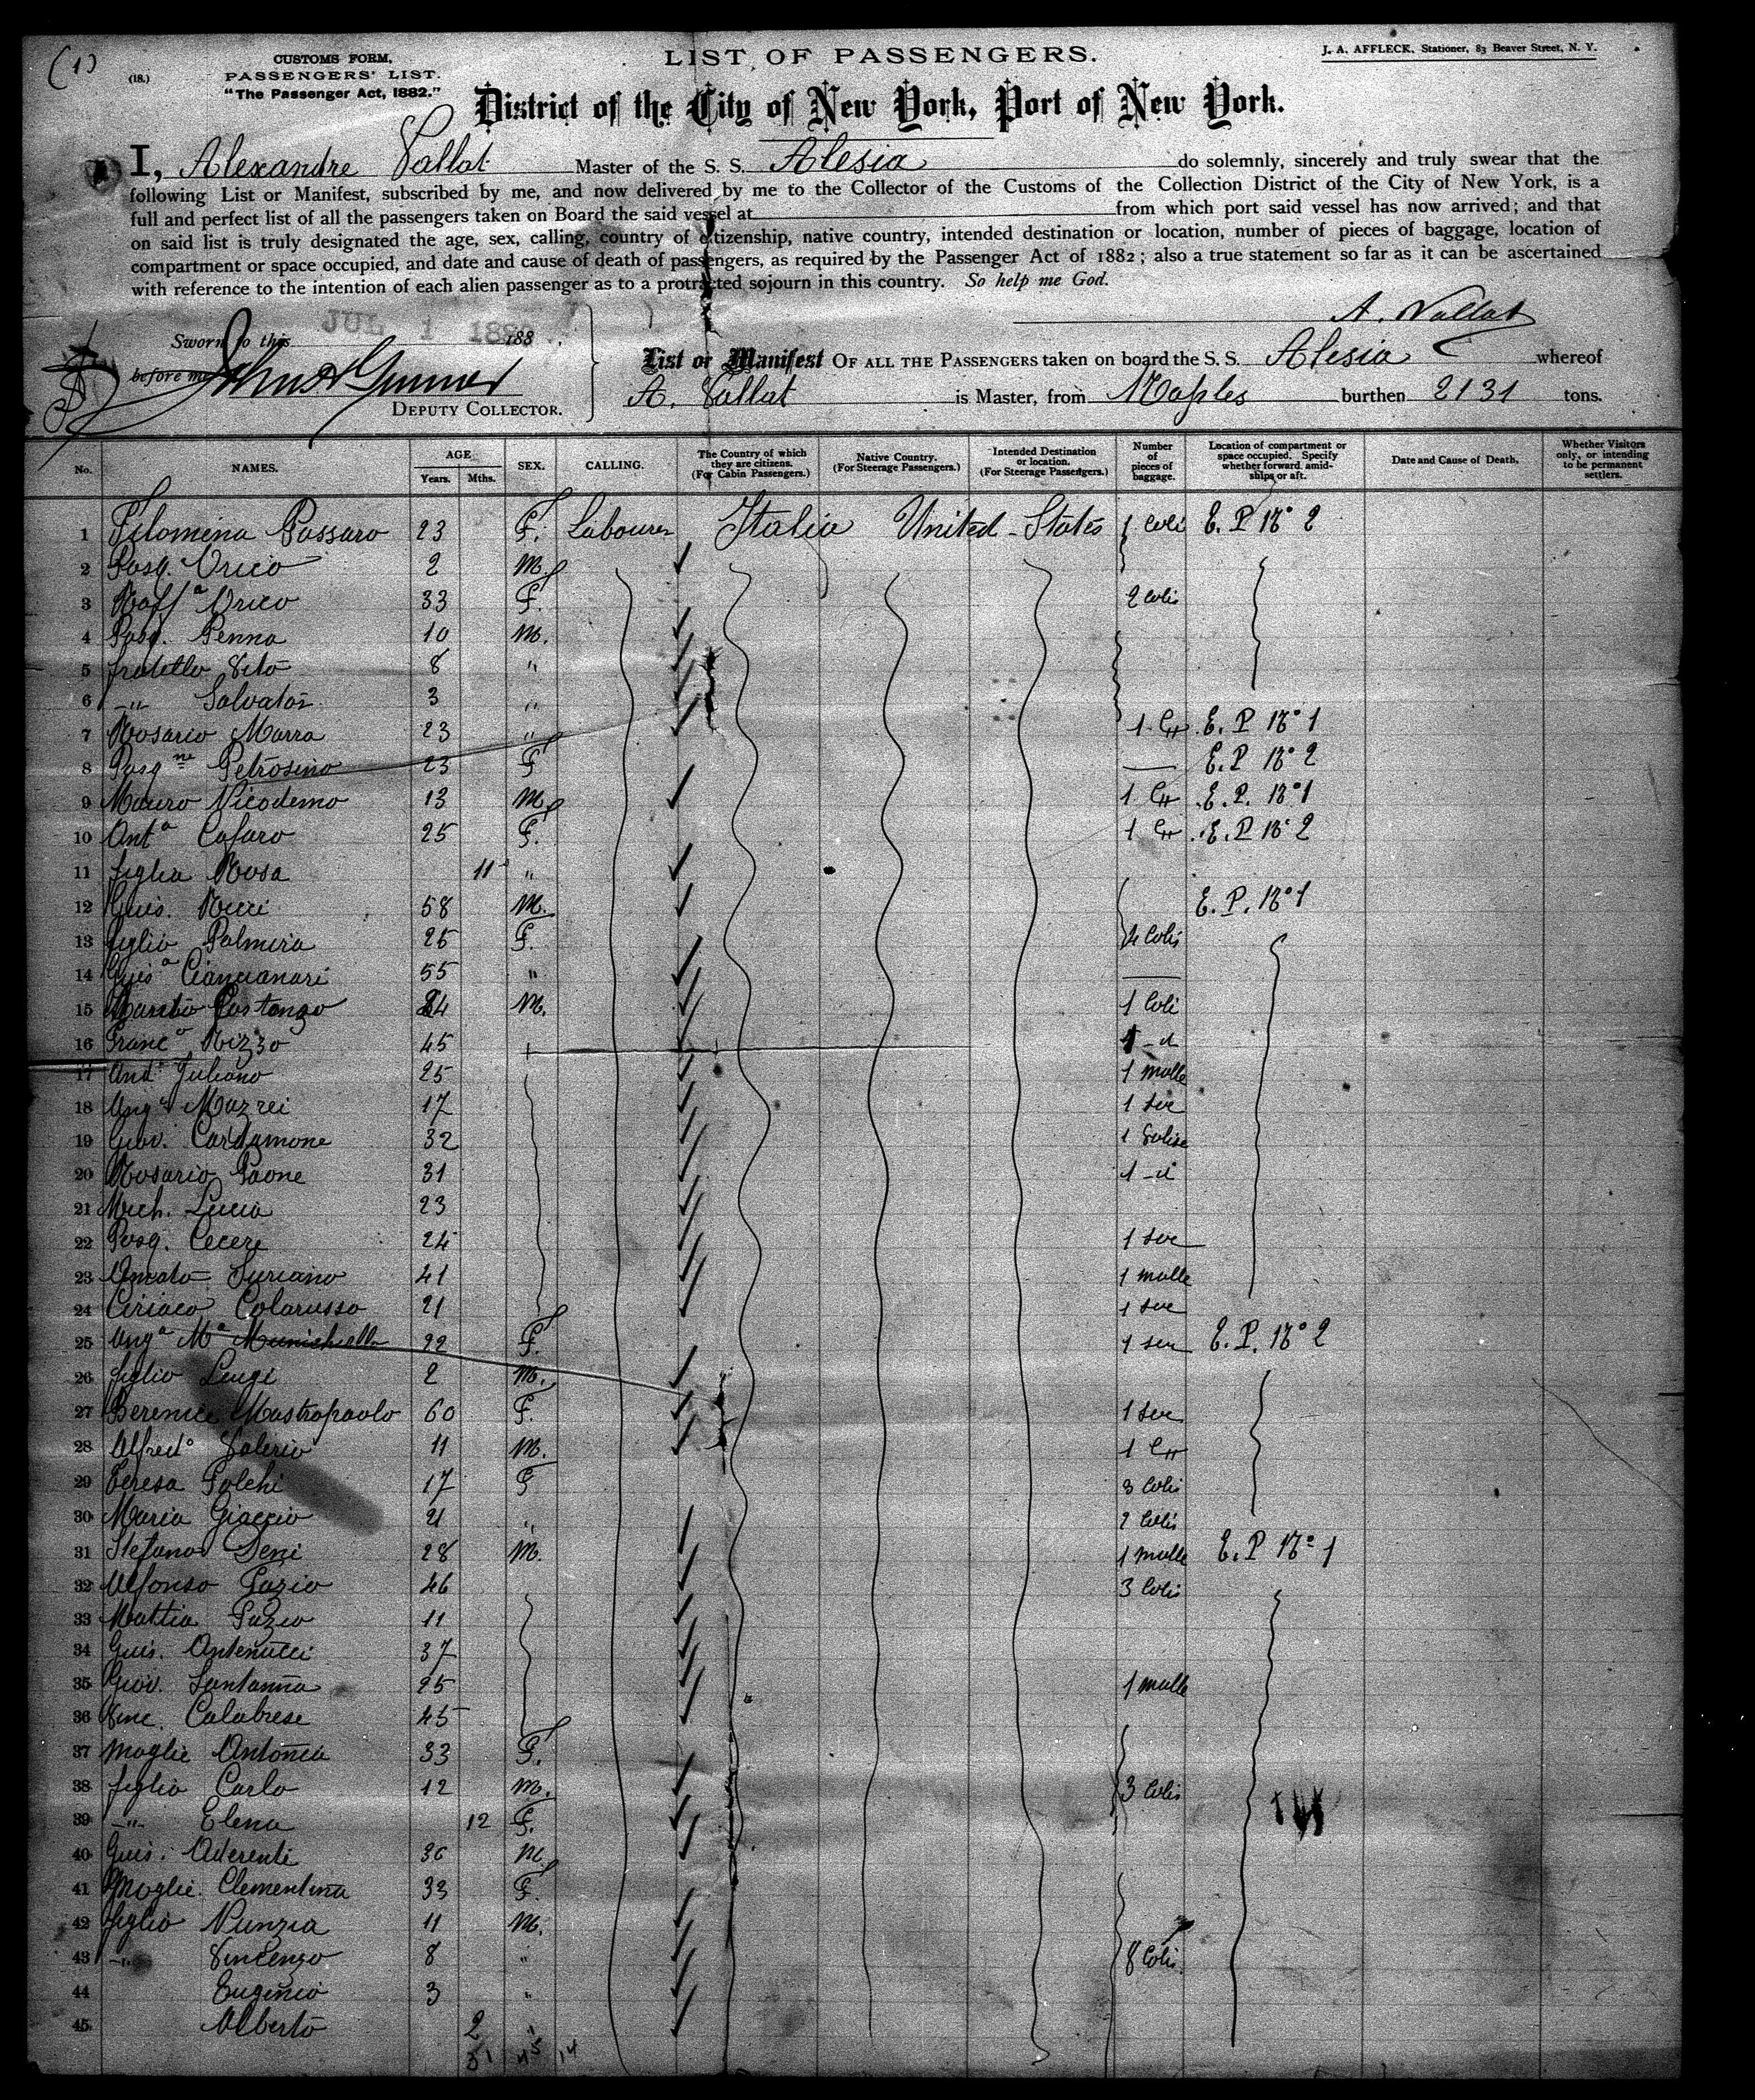 (1)
(18.)
CUSTOMS FORM,
PASSENGERS' LIST.
"The Passenger Act, 1882."
LIST OF PASSENGERS.
J. A. AFFLECK, Stationer, 83 Beaver Street, N. Y.
District of the City of New York, Port of New York.
I, Alexandre Vallat Master of the S. S. Alesia do solemnly, sincerely and truly swear that the
following List or Manifest, subscribed by me, and now delivered by me to the Collector of the Customs of the Collection District of the City of New York, is a
full and perfect list of all the passengers taken on Board the said vessel at from which port said vessel has now arrived; and that
on said list is truly designated the age, sex, calling, country of citizenship, native country, intended destination or location, number of pieces of baggage, location of
compartment or space occupied, and date and cause of death of passengers, as required by the Passenger Act of 1882; also a true statement so far as it can be ascertained
with reference to the intention of each alien passenger as to a protracted sojourn in this country. So help me God.
A. Vallat
JUL 1 188
Sworn to this 188
before me
DEPUTY COLLECTOR.
List or Manifest OF ALL THE PASSENGERS taken on board the S. S. Alesia whereof
A. Vallat is Master, from Naples burthen 2131 tons.
No. NAMES. AGE Years. Mths. SEX. CALLING. The Country of which they are citizens. (For Cabin Passengers.) Native Country. (For Steerage Passengers.) Intended Destination or location. (For Steerage Passengers.) Number of pieces of baggage. Location of compartment or space occupied. Specify whether forward, amidships or aft. Date and Cause of Death. Whether Visitors only, or intending to be permanent settlers.
1 Filomena Passaro 23 F. Labourer Italia United-States 1 Coli E. P N° 2
2 Pasq. Orico 2 M.
3 Raffa Orico 33 F. 2 Colis
4 Pasq. Penna 10 M.
5 fratello Vito 8 "
6 -"- Salvator 3 "
7 Rosario Marra 23 " 1 E. P N° 1
8 Pasqne Petrosino 23 F — E. P N° 2
9 Mauro Nicodemo 13 M. 1 E. P. N° 1
10 Anta Cafaro 25 F. 1 E. P N° 2
11 figlia Rosa 11 "
12 Gius. Ricci 58 M. E. P. N° 1
13 figlia Palmira 25 F. 4 Colis
14 Giusa 55 " —
15 Costanzo M. 1 Coli
16 Franco Rizzo 45 1 -d
17 Anto Juliano 25 1 malle
18 Ango Mazzei 17 1 sac
19 Giov. Cardamone 32 1 Valise
20 Rosario Paone 31 1 -d
21 Mich. Lucia 23
22 Pasq. Cecere 24 1 sac
23 Amato Suriano 41 1 malle
24 Ciriaco Colarusso 21 1 sac
25 Anga Ma 22 F. 1 sac E. P. N° 2
26 figlio Luigi 2 M.
27 Berenice Mastropaolo 60 F. 1 sac
28 Alfredo Valerio 11 M. 1
29 Teresa Polchi 17 F 3 Colis
30 Maria Giaccio 21 " 2 Colis
31 Stefano Deni 28 M. 1 malle E. P N° 1
32 Alfonso Pazio 46 3 Colis
33 Mattia Pazio 11
34 Gius. Antenucci 37
35 Giov. Santanna 25 1 malle
36 Vinc. Calabrese 45
37 Moglie Antonia 33 F.
38 figlio Carlo 12 M. 3 Colis
39 -"- Elena 12 F.
40 Gius. Aderenti 36 M
41 Moglie Clementina 33 F.
42 figlio Nunzia 11 M.
43 -"- Vincenzo 8 " 8 Colis
44 Eugenio 3 "
45 Alberto 2 "
31 45 14